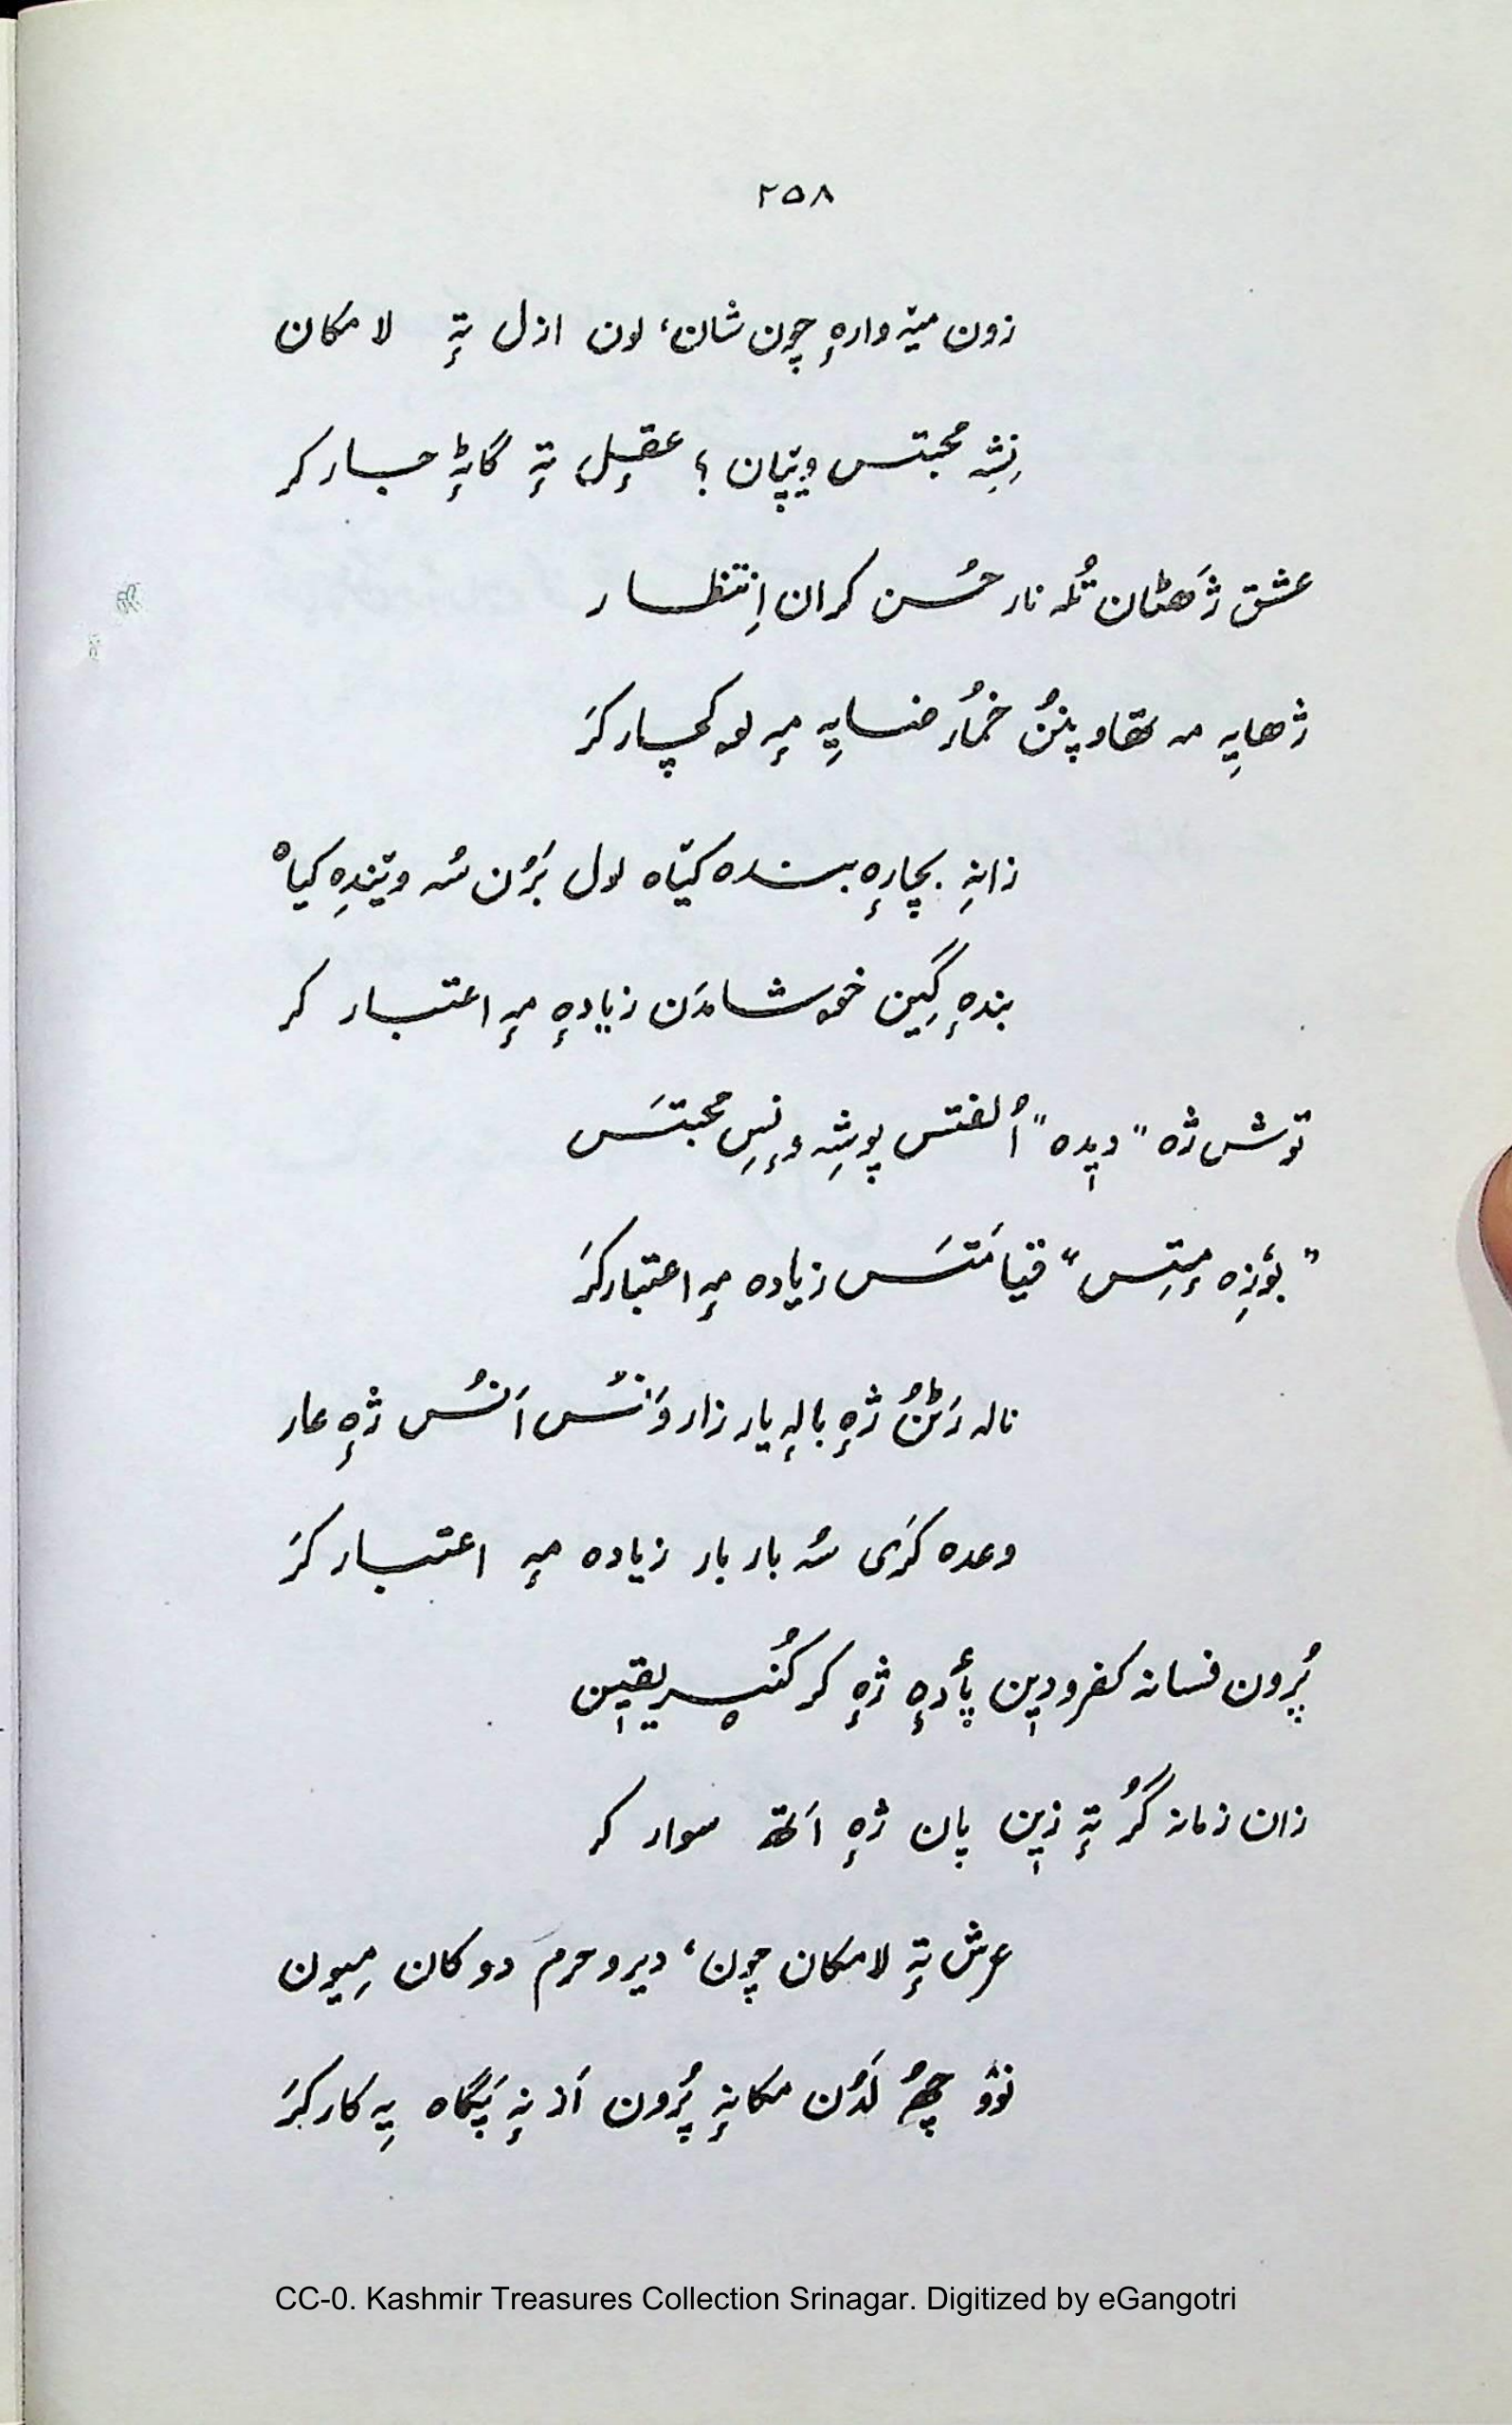 ۲۵۸
زون میٚہ وارہٕ چون شان، لون ازل تہٕ لا مکان
نِشہِ محبتس ویٚپان ؟ عقٕل تہٕ گاٹہٕ جار کر
عشق ژَھٹان تُلہ نار حُسن کران اِنتظار
ژھایہِ مہ تھاو پننُ خمُار ضایہِ مہٕ لوکچار کرَ
زانہِ بچارہٕ بندہ کیٚاہ لول بَرُن سُہ ویٚندِہ کیاہ
بندہٕ گِین خوشامدَن زیادہٕ مہٕ اعتبار کر
توش ژہ "دیٖدہ" اُلفتس پوشہِ ونٕسِ محبتَس
"بوٗزِہ مٕتِس" قیامَتَس زیادہ مہٕ اعتبار کرَ
نالہ رَٹُن ژہٕ بالہٕ یار زار وَنُس اَنُس ژہٕ عار
وعدہ کرَی سُہ بار بار زیادہ مہٕ اعتبار کرَ
پُرون فسانہ کفرودیٖن پأدٕہ ژہٕ کر کُنہِ یقیٖن
زان زمانہ گُر تہٕ زیٖن پان ژہٕ اَتھ سوار کر
عرش تہٕ لامکان چون، دیر و حرم دوکان مِیون
نوٚو چھُ لَدُن مکانہٕ پُرون اَز نہٕ پَگاہ یہِ کار کرَ
CC-0. Kashmir Treasures Collection Srinagar. Digitized by eGangotri